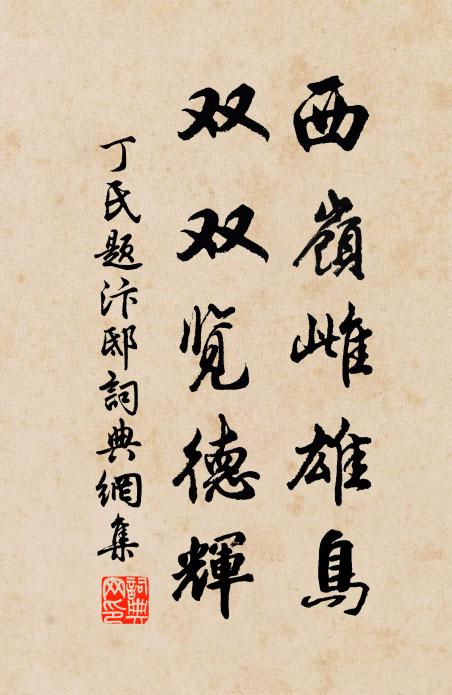 西嶺雌雄鳥
双双览德輝
丁氏题汴邸詞典網集
詞典网印